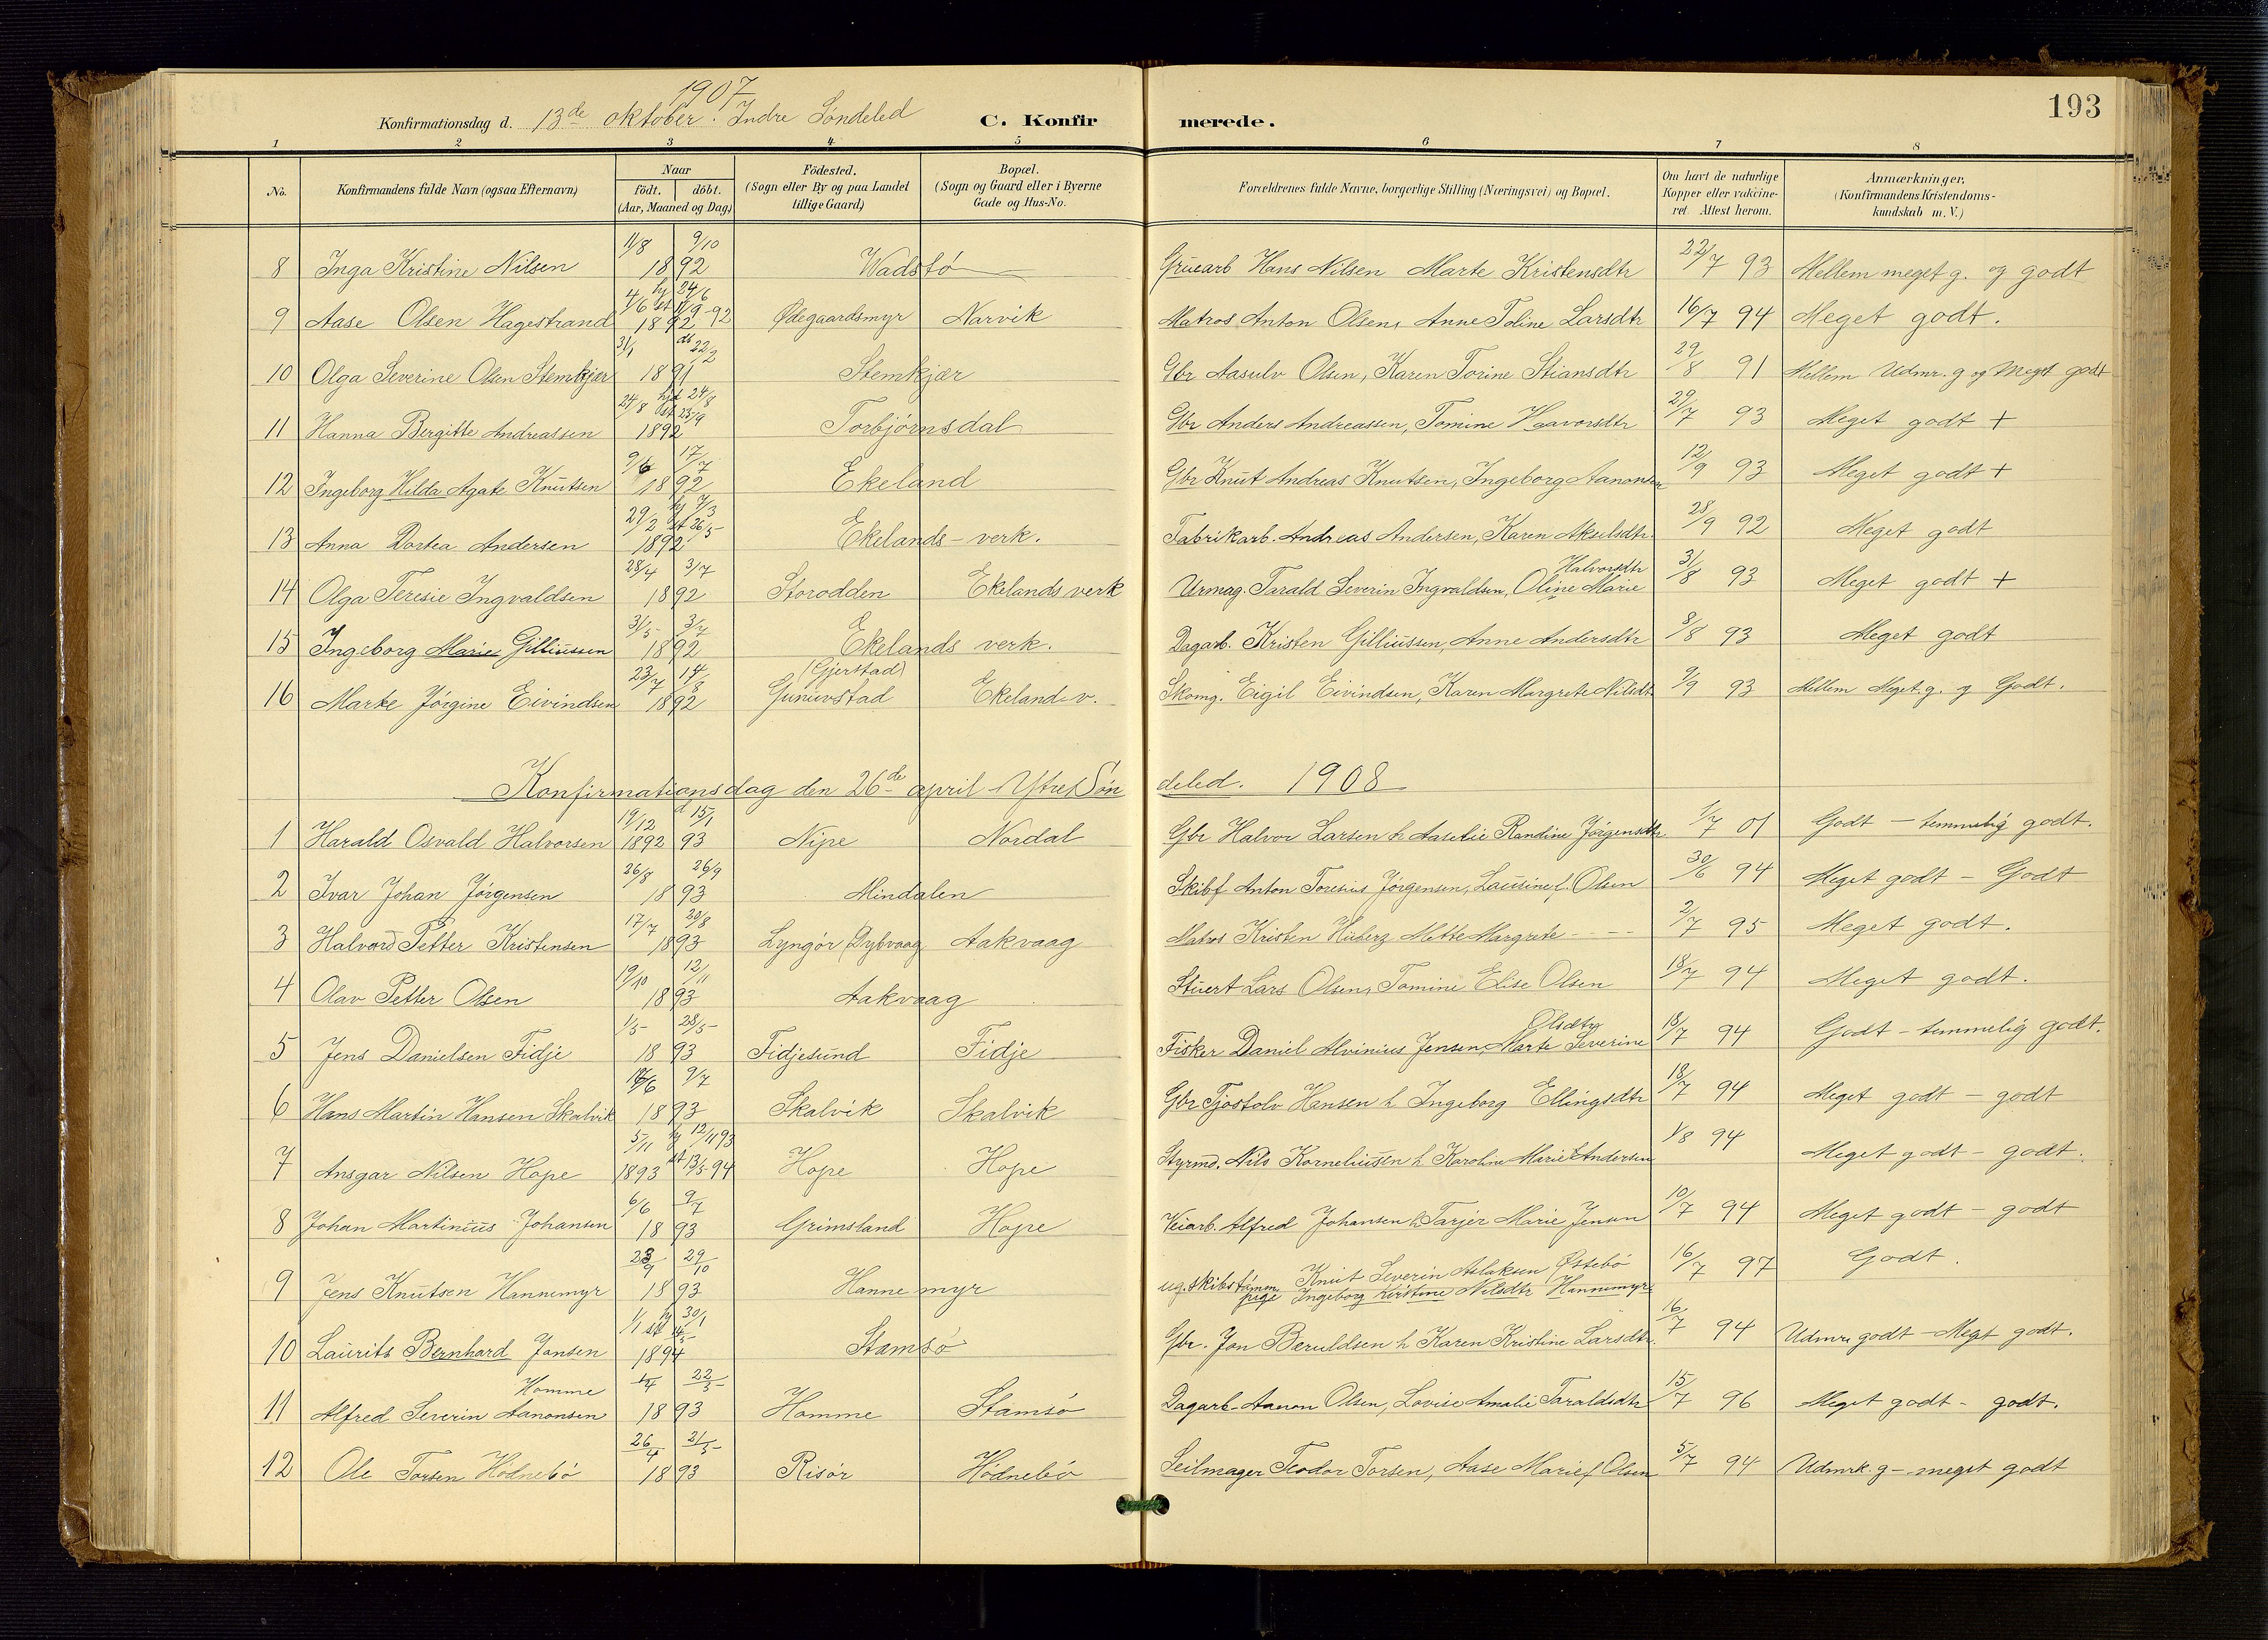 1907
193
Konfirmationsdag d. 13de oktober. Indre Søndeled C. Konfirmerede.
1 2 3 4 5 6 7 8
No. Konfirmandens fulde Navn (ogsaa Efternavn) Naar födt. döbt. (Aar, Maaned og Dag) Födested. (Sogn eller By og paa Landet tillige Gaard) Bopæl. (Sogn og Gaard eller i Byerne Gade og Hus-No. Forældrenes fulde Navne, borgerlige Stilling (Næringsvei) og Bopæl. Om havt de naturlige Kopper eller vakcineret. Attest herom. Anmærkninger, (Konfirmandens Kristendomskundskab m. V.)
8 Inga Kristine Nilsen 11/8 9/10 1892 Wadstø Gruearb Hans Nilsen Marte Kristensdtr 22/7 93 Mellem meget g. og godt
9 Aase Olsen Hagestrand 1892 Ødegaardsmyr Narvik Matros Anton Olsen, Anne Toline Larsdtr 16/7 94 Meget godt.
10 Olga Severine Olsen Stemkjær 31/1 22/2 1891 Stemkjær Gbr Aasulv Olsen, Karen Torine Stiansdtr 29/8 91 Mellem Udmr. g og Meget godt
11 Hanna Bergitte Andreassen 24/8 hjd 24/8 st 25/9 1892 Torbjørnsdal Gbr Anders Andreassen, Tomine Haavorsdtr 29/7 93 Meget godt +
12 Ingeborg Hilda Agate Knutsen 9/6 17/7 1892 Ekeland Gbr Knut Andreas Knutsen, Ingeborg Aanonsen 12/9 93 Meget godt +
13 Anna Dortea Andersen 29/2 hj 7/3 st 26/5 1892 Ekelands-verk. Fabrikarb. Andreas Andersen, Karen Akselsdtr. 28/9 92 Meget godt
14 Olga Teresie Ingvaldsen 28/4 3/7 1892 Storodden Ekelands verk Urmag. Tarald Severin Ingvaldsen, Oline Marie Halvorsdtr 31/8 93 Meget godt +
15 Ingeborg Marie Gilliussen 31/5 3/7 1892 Ekelands verk. Dagarb. Kristen Gilliussen, Anne Andersdtr 8/8 93 Meget godt
16 Marke Jørgine Eivindsen 23/7 14/8 1892 (Gjerstad) Gunuvstad Ekelands v. Skomg. Eigil Eivindsen, Karen Margrete Nilsdt 9/9 93 Mellem Meget g. og Godt.
Konfirmationsdag den 26de april - Ytre Søndeled. 1908
1 Harald Osvald Halvorsen 19/12 1892 15/1 93 Nipe Nordal Gbr Halvor Larsen h Aaselie Randine Jørgensdtr 1/7 01 Godt - temmelig godt.
2 Ivar Johan Jørgensen 26/8 26/9 1893 Mindalen Skibf Anton Toresius Jørgensen, Lausine f. Olsen 30/6 94 Meget godt - Godt
3 Halvord Petter Kristensen 17/7 20/8 1893 Lyngør (Dybvaag Aakvaag Matros Kristen Huberz Mette Margrete - - - - 2/7 95 Meget godt.
4 Olav Petter Olsen 19/10 12/11 1893 Aakvaag Stuert Lars Olsen, Tomine Elise Olsen 18/7 94 Meget godt.
5 Jens Danielsen Fidje 1/5 28/5 1893 Fidjesund Fidje Fisker Daniel Alvinius Jensen, Marte Severine Olsdtr 18/7 94 Godt - temmelig godt.
6 Hans Martin Hansen Skalvik 9/7 1893 Skalvik Skalvik Gbr Tjøstolv Hansen h Ingeborg Ellingsdtr 18/7 94 Meget godt - godt
7 Ansgar Nilsen Hope 5/11 1893 hj 12/11 93 st 13/5 94 Hope Hope Styrmd. Nils Korneliussen h Karoline Marie f Andersen 1/8 94 Meget godt - godt.
8 Johan Martinius Johansen 6/6 9/7 1893 Grimsland Hope Veiarb. Alfred Johansen h Tarjer Marie Jensen 10/7 94 Meget godt - godt
9 Jens Knutsen Hannemyr 29/10 1893 Hannemyr ug. skibstømm. Knut Severin Aslaksen Østebø
pige Ingeborg Kirstine Nilsdtr Hannemyr 16/7 97 Godt.
10 Laurits Bernhard Jansen 1/1 hj 30/1 1894 Stamsø Gbr. Jon Beruldsen h Karen Kristine Larsdtr. 16/7 94 Udmr. godt - Meget godt.
11 Alfred Severin Aanonsen Homme 22/5 1893 Homme Stamsø Dagarb. Aanon Olsen, Lovise Amalie Taraldsdtr 15/7 96 Meget godt - godt.
12 Ole Torsen Hødnebø 26/4 21/5 1893 Risør Hødnebø Seilmager Teodor Torsen, Aase Marie f Olsen 5/7 94 Udmrk. g - meget godt